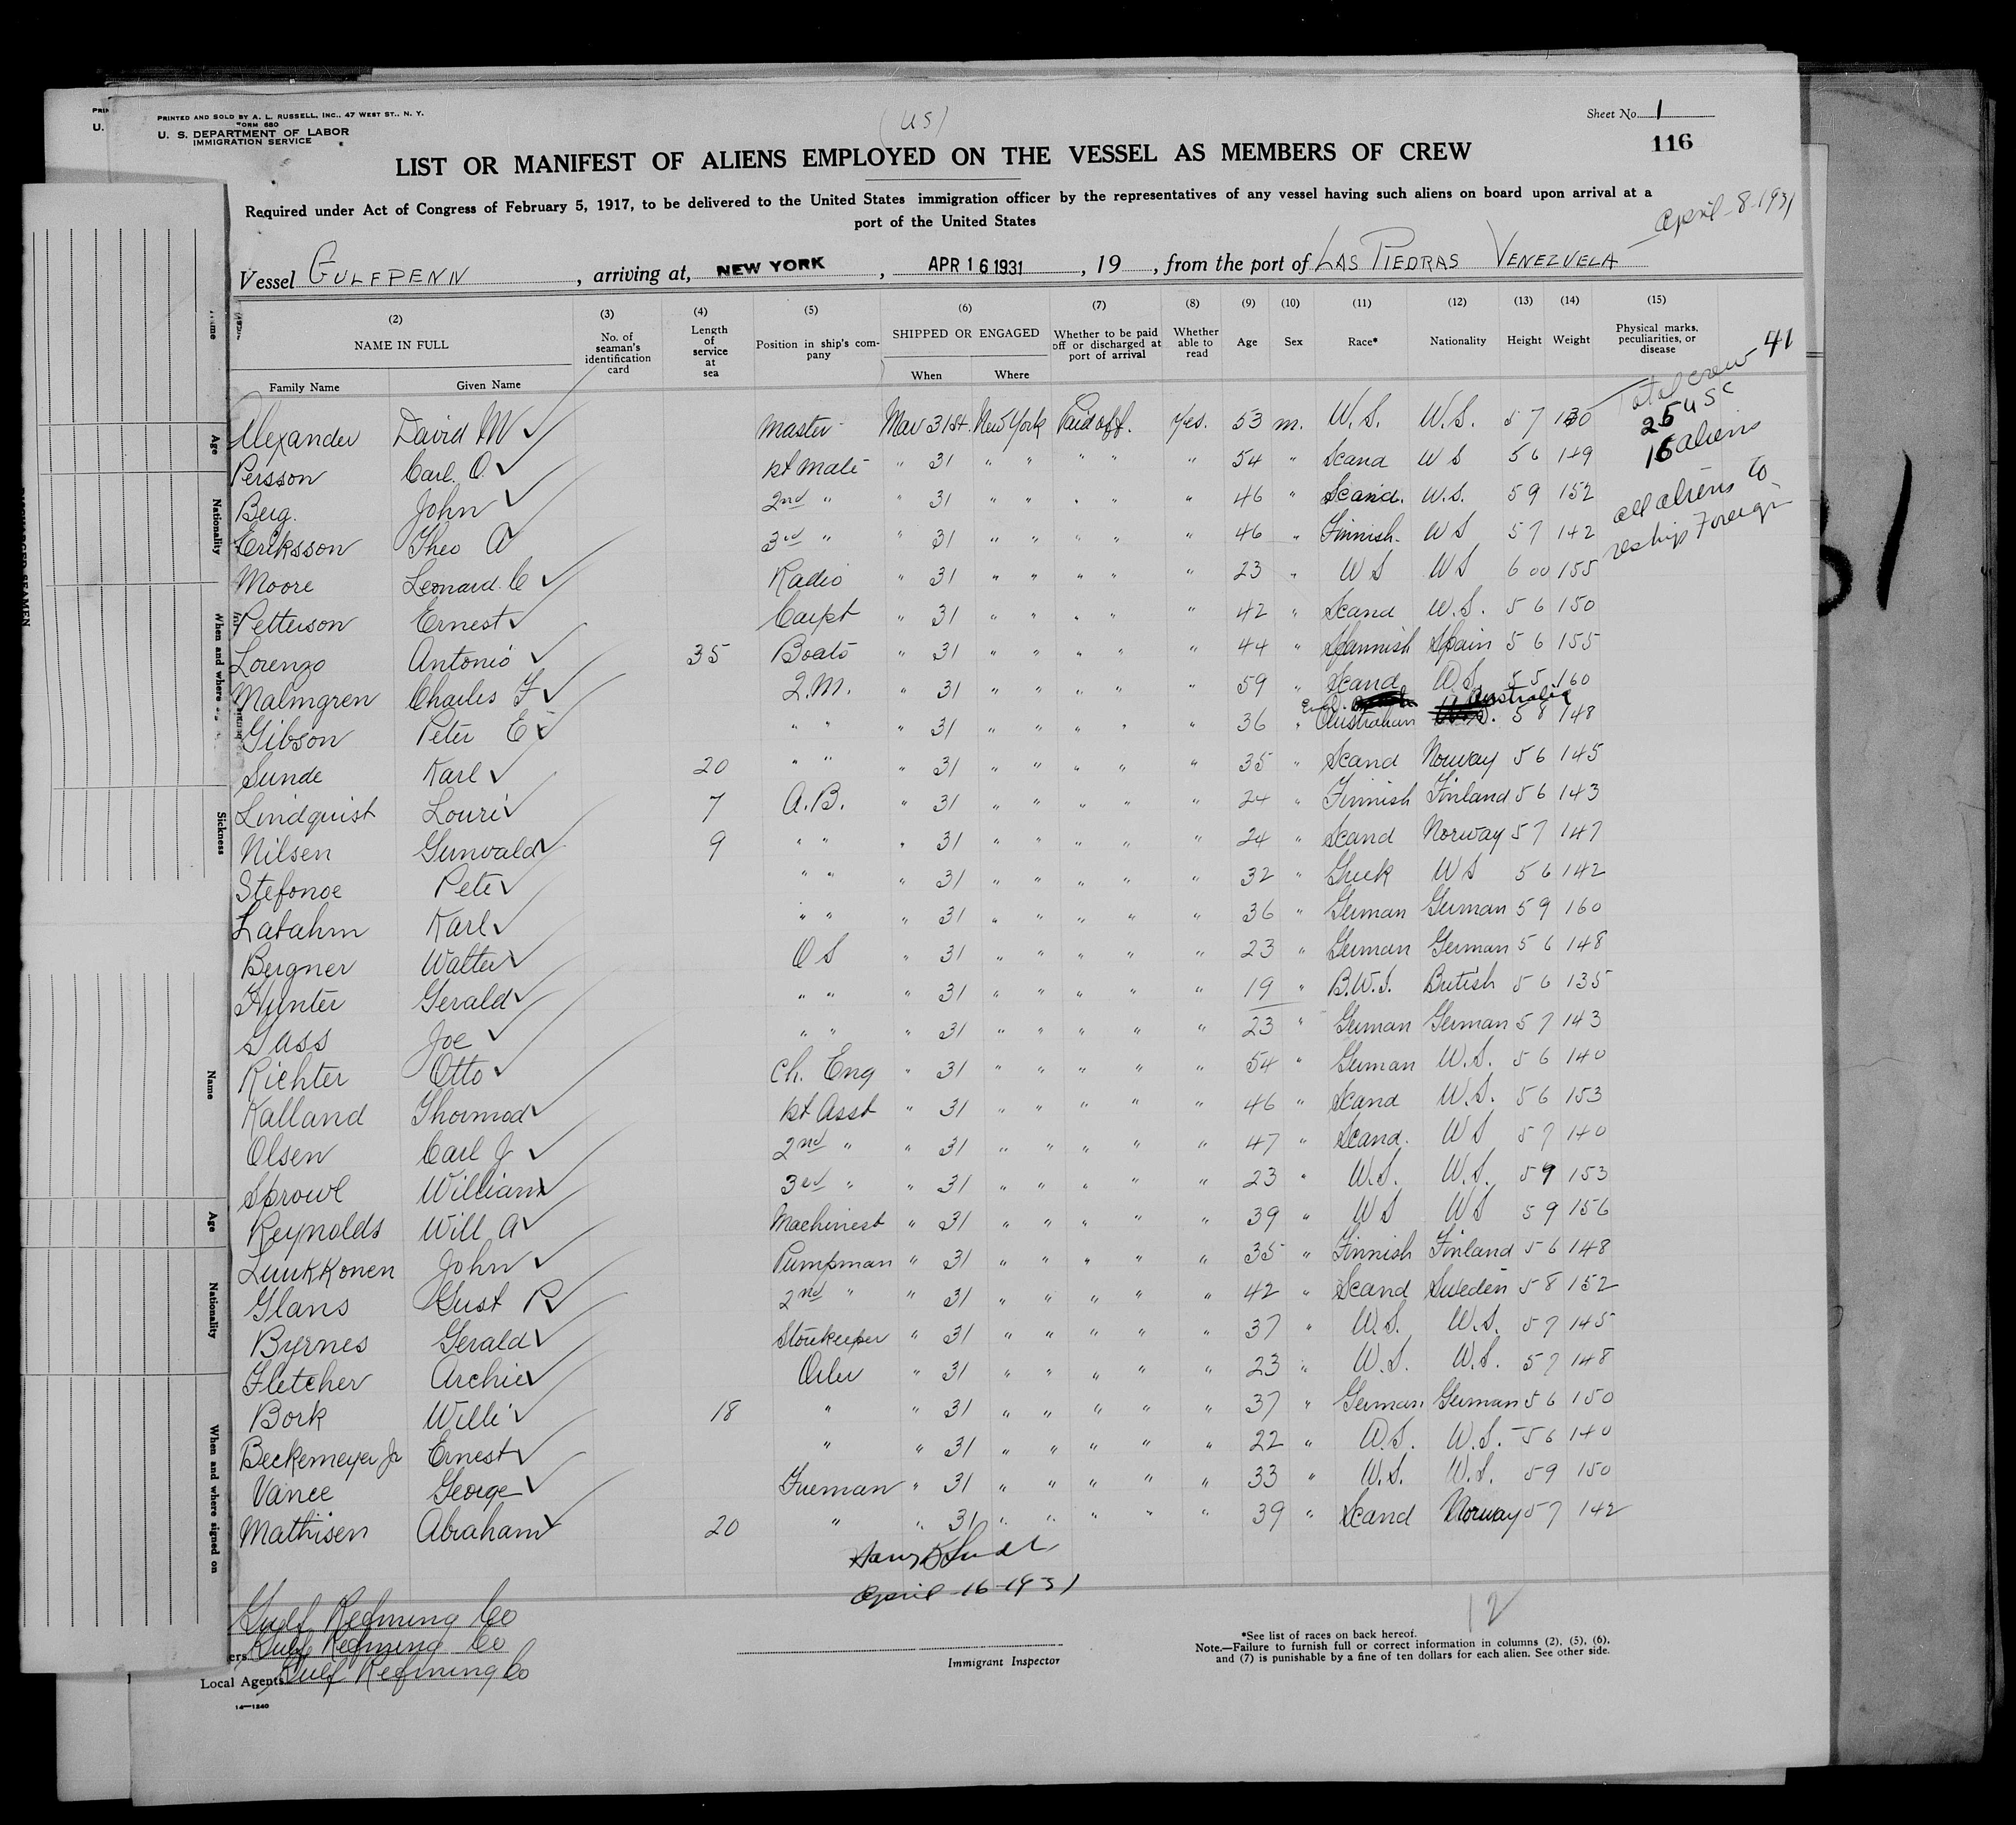 PRINTED AND SOLD BY A. L. RUSSELL, INC., 47 WEST ST., N. Y.
FORM 680
U. S. DEPARTMENT OF LABOR
IMMIGRATION SERVICE
(US)
Sheet No. 1
116
LIST OR MANIFEST OF ALIENS EMPLOYED ON THE VESSEL AS MEMBERS OF CREW
Required under Act of Congress of February 5, 1917, to be delivered to the United States immigration officer by the representatives of any vessel having such aliens on board upon arrival at a
port of the United States
April-8-1931
Vessel GULFPENN, arriving at, NEW YORK, APR 16 1931, 19, from the port of LAS PIEDRAS VENEZUELA
(2) (3) (4) (5) (6) (7) (8) (9) (10) (11) (12) (13) (14) (15)
NAME IN FULL Family Name Given Name
No. of seaman's identification card
Length of service at sea
Position in ship's company
SHIPPED OR ENGAGED When Where
Whether to be paid off or discharged at port of arrival
Whether able to read
Age Sex Race* Nationality Height Weight
Physical marks, peculiarities, or disease
Total crew 41
25 USC
16 aliens
all aliens to
reship Foreign
Alexander David M Master Mar 31st. New York Paid off. Yes. 53 m. U.S. U.S. 5 7 130
Persson Carl. O. 1st Mate " 31 " " " " " 54 " Scand U S 5 6 149
Berg. John 2nd " " 31 " " " " " 46 " Scand. U.S. 5 9 152
Eriksson Theo A 3rd " " 31 " " " " " 46 " Finnish. U S 5 7 142
Moore Leonard. C Radio " 31 " " " " " 23 " U S U S 6 00 155
Petterson Ernest Carpt " 31 " " " " " 42 " Scand U.S. 5 6 150
Lorenzo Antonio 35 Boats " 31 " " " " " 44 " Spannish Spain 5 6 155
Malmgren Charles F Q.M. " 31 " " " " " 59 " Scand U.S. 5 5 160
Gibson Peter E " " " 31 " " " " " 36 " Australian Australia 5 8 148
Sunde Karl 20 " " " 31 " " " " " 35 " Scand Norway 5 6 145
Lindquist Louri 7 A.B. " 31 " " " " " 24 " Finnish Finland 5 6 143
Nilsen Gunvald 9 " " " 31 " " " " " 24 " Scand Norway 5 7 147
Stefonoe Pete " " " 31 " " " " " 32 " Greek U S 5 6 142
Latahm Karl " " " 31 " " " " " 36 " German German 5 9 160
Bergner Walter O S " 31 " " " " " 23 " German German 5 6 148
Hunter Gerald " " " 31 " " " " " 19 " B.W.I. British 5 6 135
Gass Joe " " " 31 " " " " " 23 " German German 5 7 143
Richter Otto Ch. Eng " 31 " " " " " 54 " German U.S. 5 6 140
Kalland Thormod 1st Asst " 31 " " " " " 46 " Scand U.S. 5 6 153
Olsen Carl J 2nd " " 31 " " " " " 47 " Scand. U S 5 7 140
Sprowl William 3rd " " 31 " " " " " 23 " U.S. U.S. 5 9 153
Reynolds Will A Machinest " 31 " " " " " 39 " U S U S 5 9 156
Luukkonen John Pumpman " 31 " " " " " 35 " Finnish Finland 5 6 148
Glans Gust R 2nd " " 31 " " " " " 42 " Scand Sweden 5 8 152
Byrnes Gerald Storekeeper " 31 " " " " " 37 " U.S. U.S. 5 7 145
Fletcher Archie Oiler " 31 " " " " " 23 " U.S. U.S. 5 7 148
Bork Willi 18 " " 31 " " " " " 37 " German German 5 6 150
Beckemeyer Jr Ernest " " 31 " " " " " 22 " U.S. U.S. 5 6 140
Vance George Fireman " 31 " " " " " 33 " U.S. U.S. 5 9 150
Mathisen Abraham 20 " " 31 " " " " " 39 " Scand Norway 5 7 142
April-16-1931
Gulf Refining Co
ers Gulf Refining Co
Local Agents Gulf Refining Co
14—1240
Immigrant Inspector
12
*See list of races on back hereof.
Note.—Failure to furnish full or correct information in columns (2), (5), (6),
and (7) is punishable by a fine of ten dollars for each alien. See other side.
Age
Nationality
When and where
Sickness
Name
Age
Nationality
When and where signed on